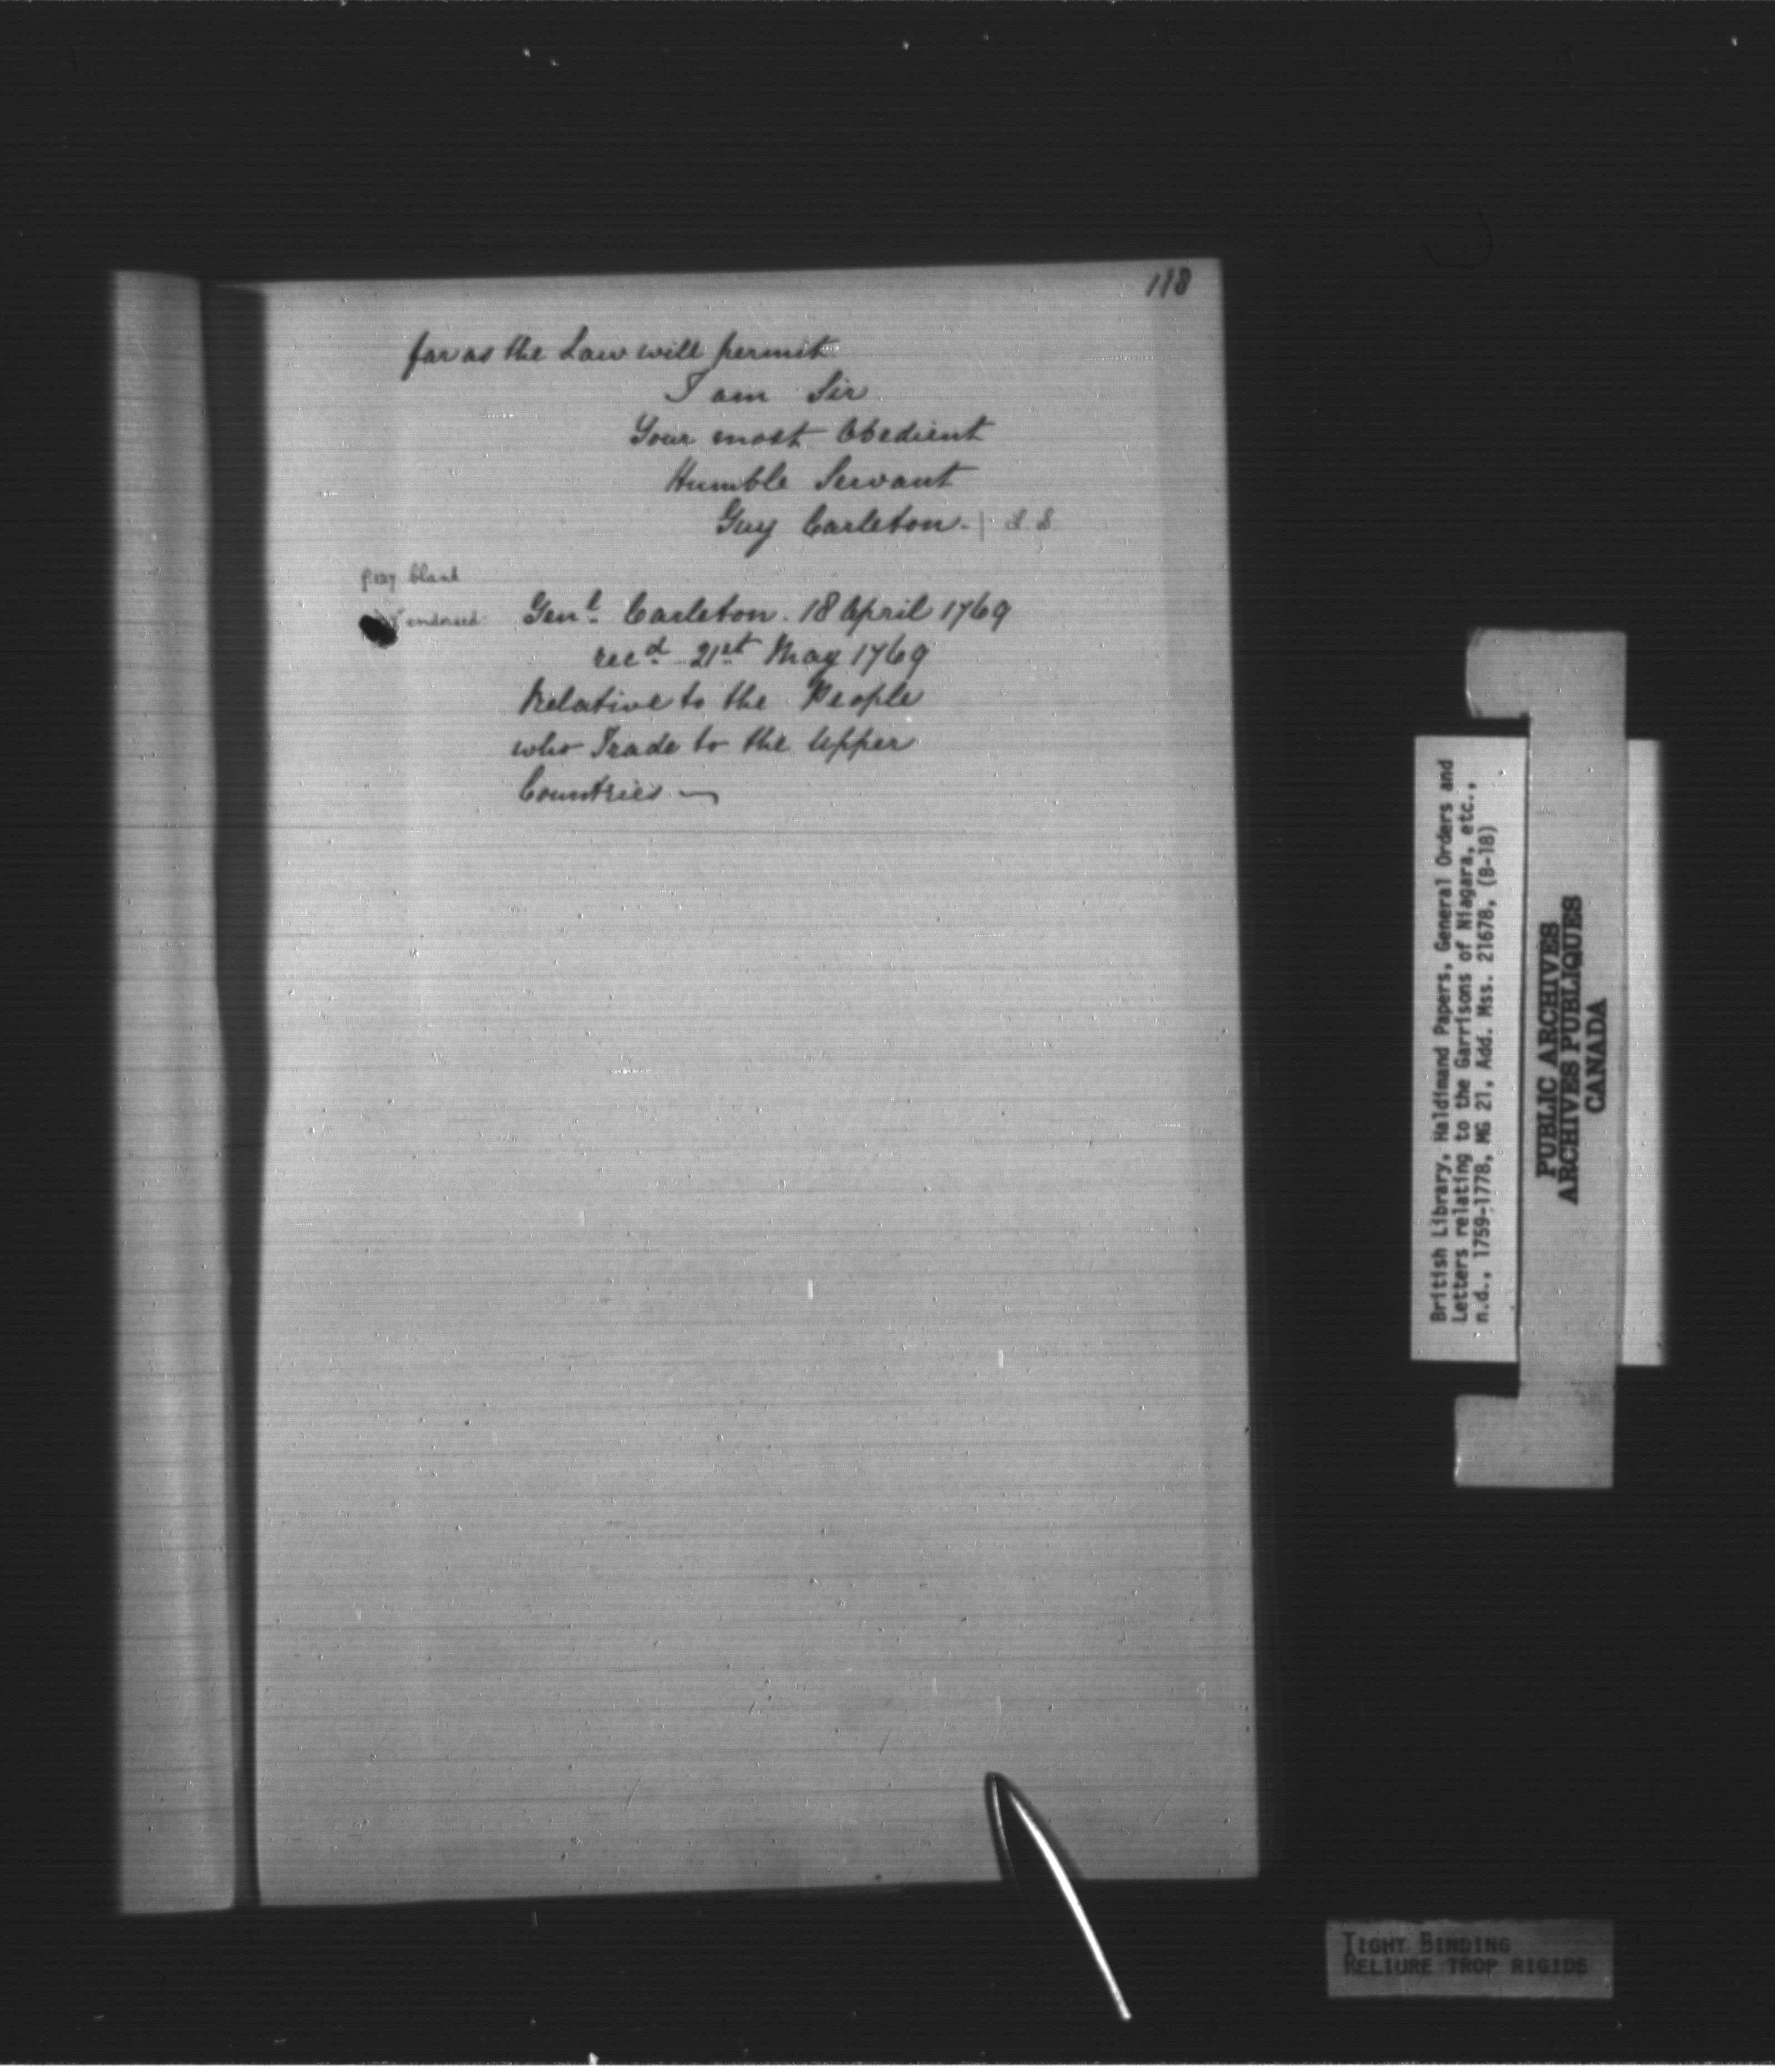 118
far as the Law will permit
I am Sir
Your most Obedient
Humble Servant
Guy Carleton. | L S
f. 127 blank
endorsed Genl. Carleton. 18 April 1769
recd. 21st May 1769
Relative to the People
who Trade to the Upper
Countries —
British Library, Haldimand Papers, General Orders and
Letters relating to the Garrisons of Niagara, etc.,
n.d., 1759-1778, MG 21, Add. Mss. 21678, (B-18)
PUBLIC ARCHIVES
ARCHIVES PUBLIQUES
CANADA
TIGHT BINDING
RELIURE TROP RIGIDE